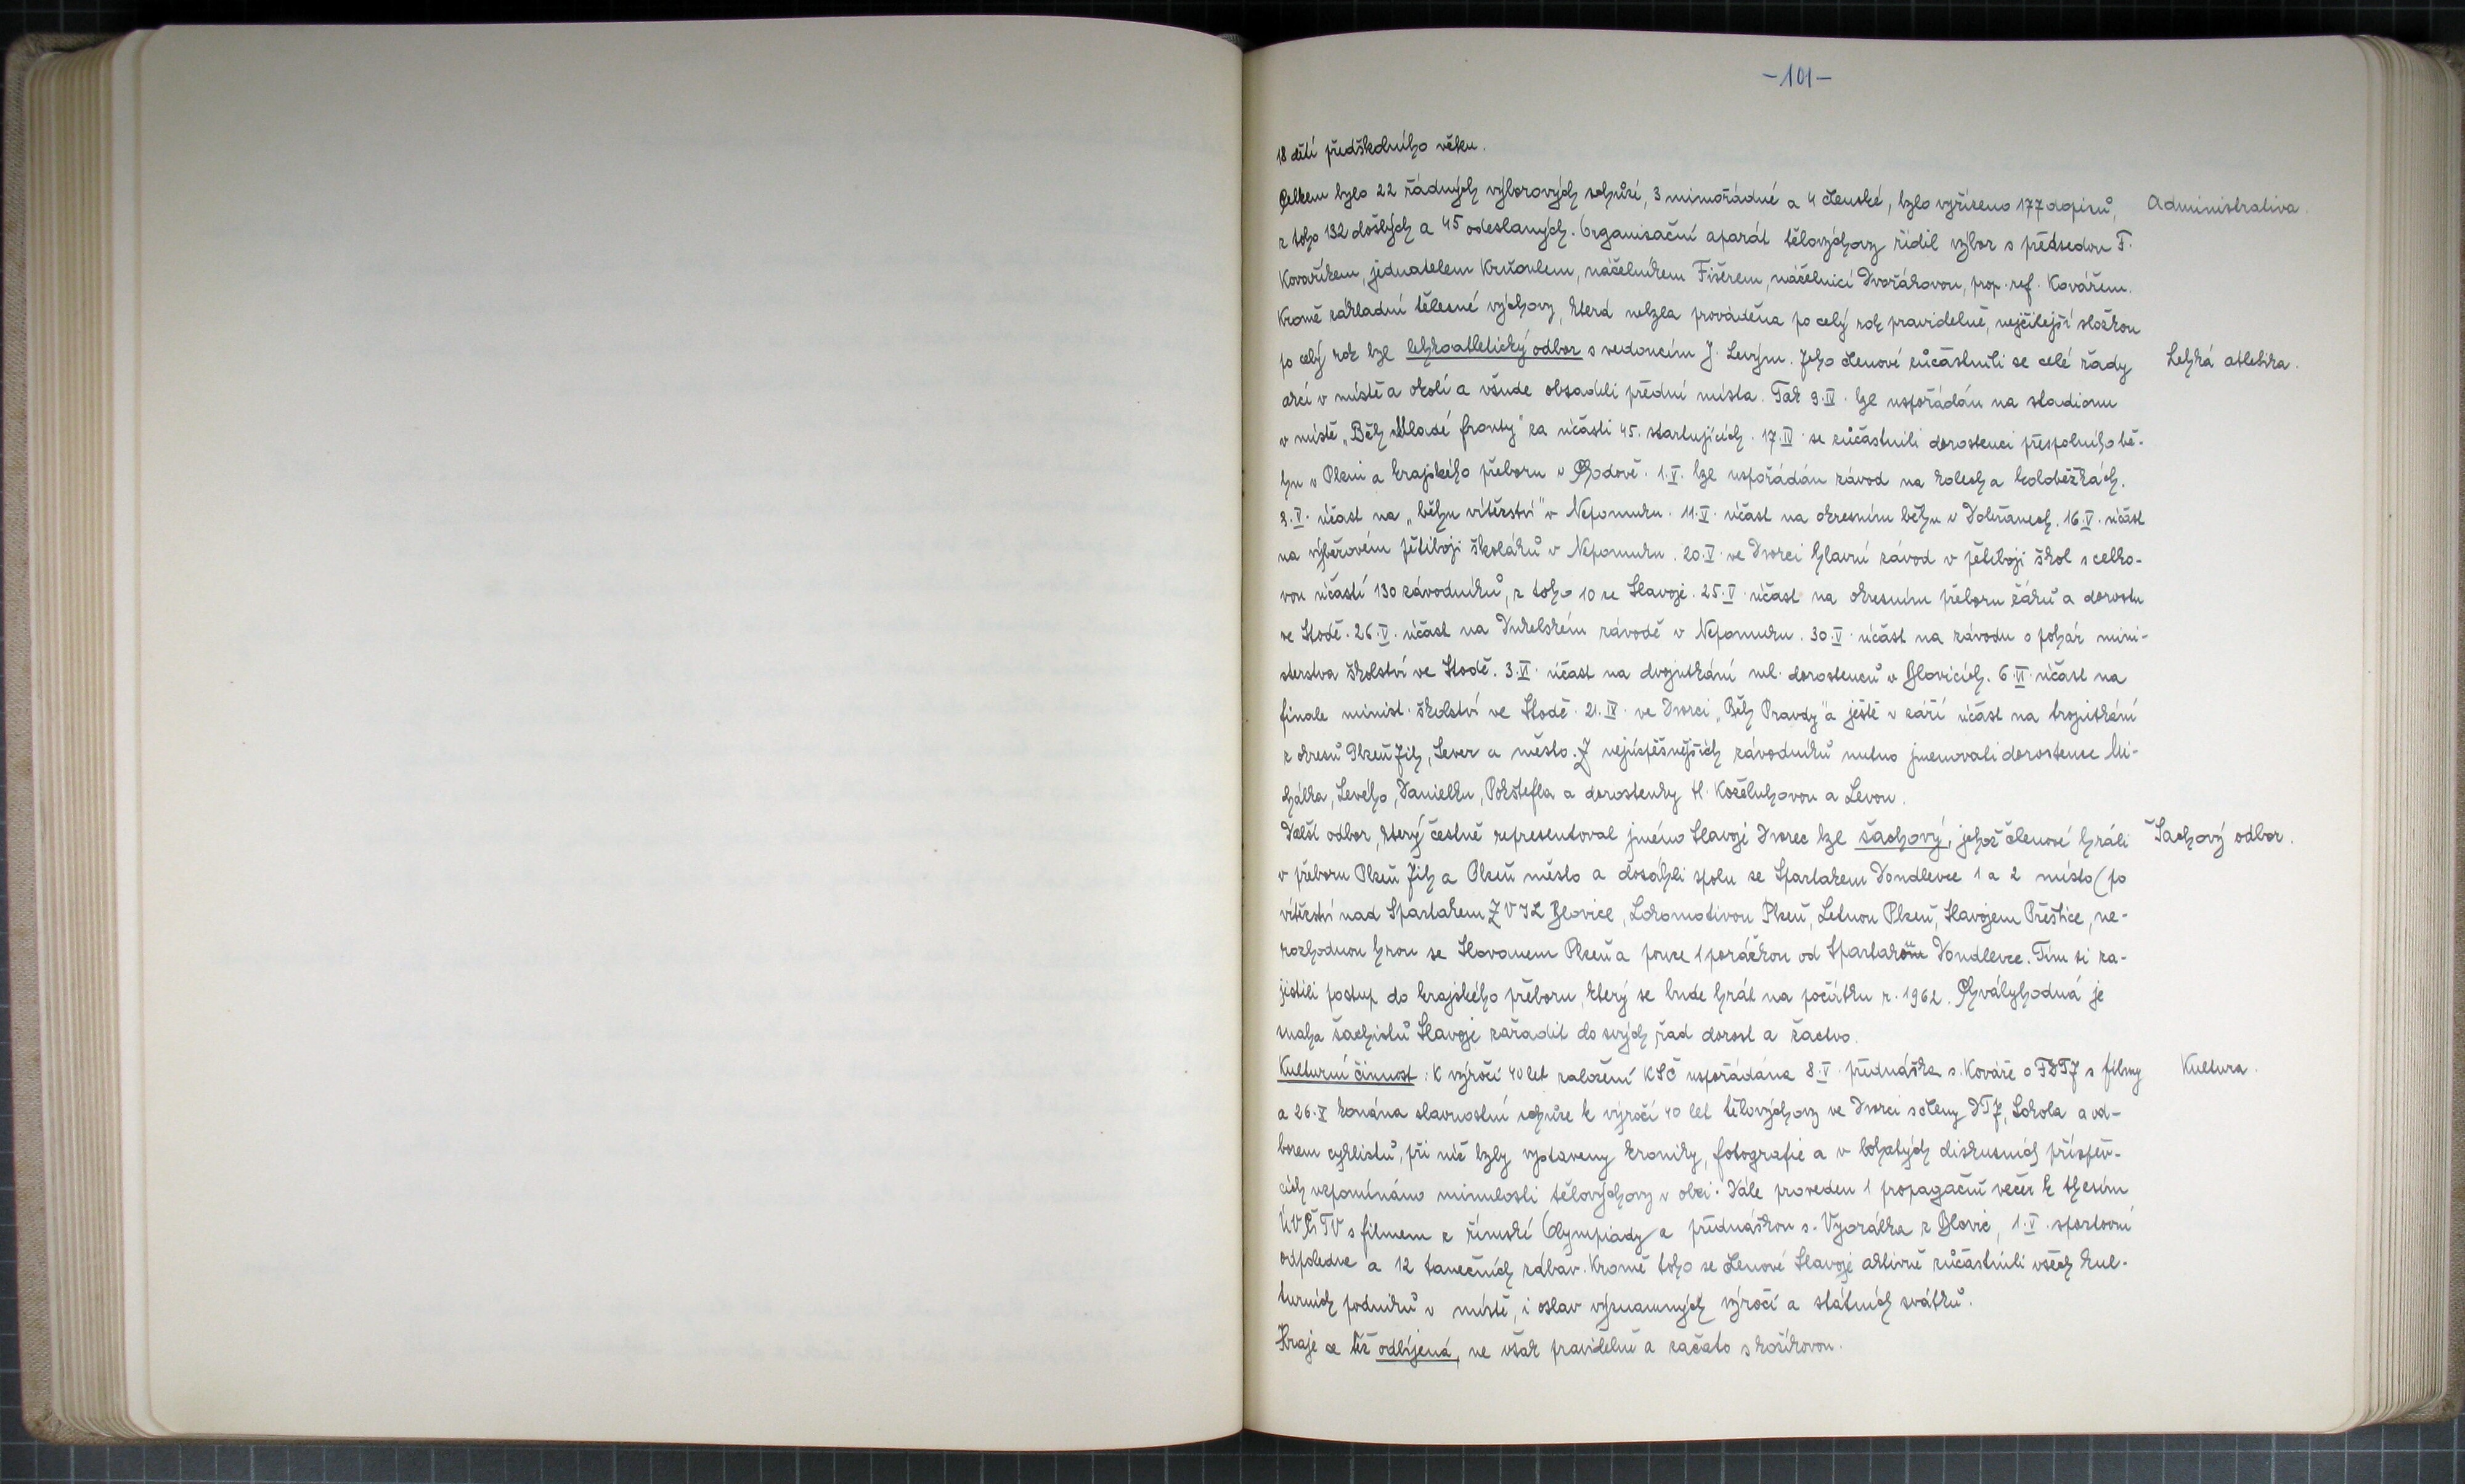 -101-
18 dětí předškolního věku.
Celkem bylo 22 řádných výborových schůzí, 3 mimořádné a 4 členské, bylo vyřízeno 177 dopisů,
Administrativa.
z toho 132 došlých a 45 odeslaných. Organisační aparát tělovýchovy řídil výbor s předsedou F.
Kovaříkem, jednatelem Kružoulem, náčelníkem Fišerem, náčelnicí Dvořákovou, prop. ref. Kovářem.
Kromě základní tělesné výchovy, která nebyla prováděna po celý rok pravidelně, nejčilejší složkou
po celý rok byl lehkoatletický odbor s vedoucím J. Levým. Jeho členové zúčastnili se celé řady
Lehká atletika.
akcí v místě a okolí a všude obsadili přední místa. Tak 9.IV. byl uspořádán na stadionu
v místě „Běh Mladé fronty" za účasti 45. startujících. 17.IV. se zúčastnili dorostenci přespolního bě-
hu v Plzni a krajského přeboru v Chodově. 1.V. byl uspořádán závod na kolech a koloběžkách.
8.V. účast na „běhu vítězství" v Nepomuku. 11.V. účast na okresním běhu v Dobřanech. 16.V. účast
na výběrovém pětiboji školáků v Nepomuku. 20.V. ve Dvorci hlavní závod v pětiboji škol s celko-
vou účastí 130 závodníků, z toho 10 ze Slavoje. 25.V. účast na okresním přeboru žáků a dorostu
ve Stodě. 26.V. účast na Dukelském závodě v Nepomuku. 30.V. účast na závodu o pohár mini-
sterstva školství ve Stodě. 3.VI. účast na dvojutkání ml. dorostenců v Blovicích. 6.VI. účast na
finale minist. školství ve Stodě. 21.IX. ve Dvorci „Běh Pravdy" a ještě v září účast na trojutkání
z okresů Plzeň Jih, Sever a město. Z nejúspěšnějších závodníků nutno jmenovati dorostence Mi-
chálka, Levého, Danielku, Pokštefla a dorostenky H. Koželuhovou a Levou.
Další odbor, který čestně representoval jméno Slavoje Dvorec byl šachový, jehož členové hráli
Šachový odbor.
v přeboru Plzeň Jih a Plzeň město a dosáhli spolu se Spartakem Vondlevce 1 a 2 místo (po
vítězství nad Spartakem ZVIL Blovice, Lokomotivou Plzeň, Letnou Plzeň, Slavojem Přeštice, ne-
rozhodnou hrou se Slovanem Plzeň a pouze 1 porážkou od Spartaku Vondlevce. Tím si za-
jistili postup do krajského přeboru, který se bude hrát na počátku r. 1962. Chvályhodná je
snaha šachistů Slavoje zařadit do svých řad dorost a žactvo.
Kulturní činnost: K výročí 40 let založení KSČ uspořádána 8.V. přednáška s. Kováře o FDTJ s filmy
Kultura.
a 26.X konána slavnostní schůze k výročí 40 let tělovýchovy ve Dvorci s členy DTJ, Sokola a od-
borem cyklistů, při níž byly vystaveny kroniky, fotografie a v bohatých diskusních příspěv-
cích vzpomínáno minulosti tělovýchovy v obci. Dále proveden 1 propagační večer k thesím
ÚV ČSTV s filmem z římské Olympiady a přednáškou s. Vyorálka z Blovic, 1.V. sportovní
odpoledne a 12 tanečních zábav. Kromě toho se členové Slavoje aktivně zúčastnili všech kul-
turních podniků v místě, i oslav významných výročí a státních svátků.
Hraje se též odbíjená, ne však pravidelně a začato s košíkovou.